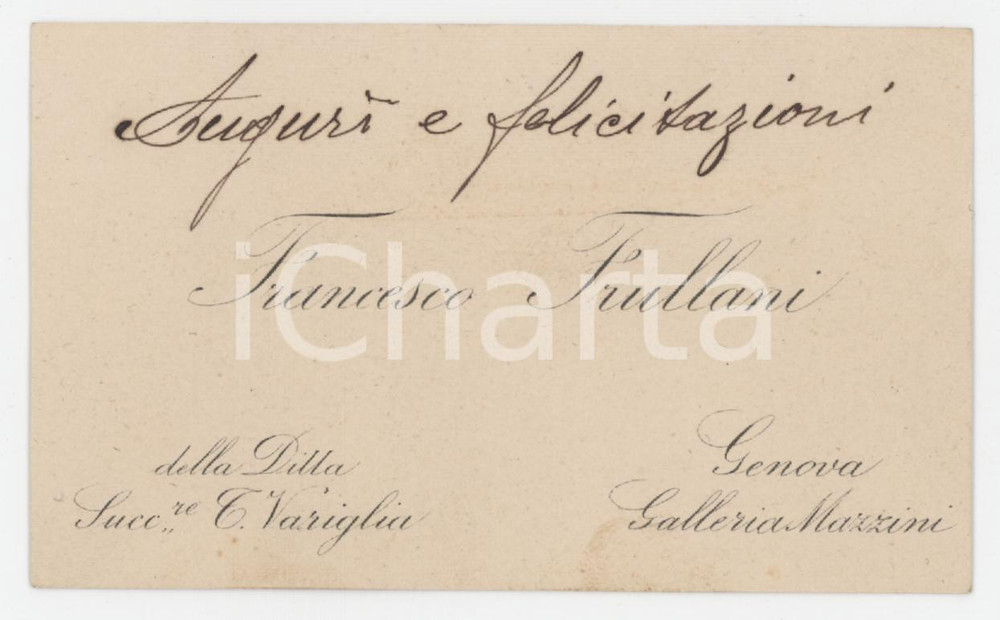 Auguri e felicitazioni
Francesco Frullani
iCharta
della Ditta
Succ.re T. Variglia
Genova
Galleria Mazzini